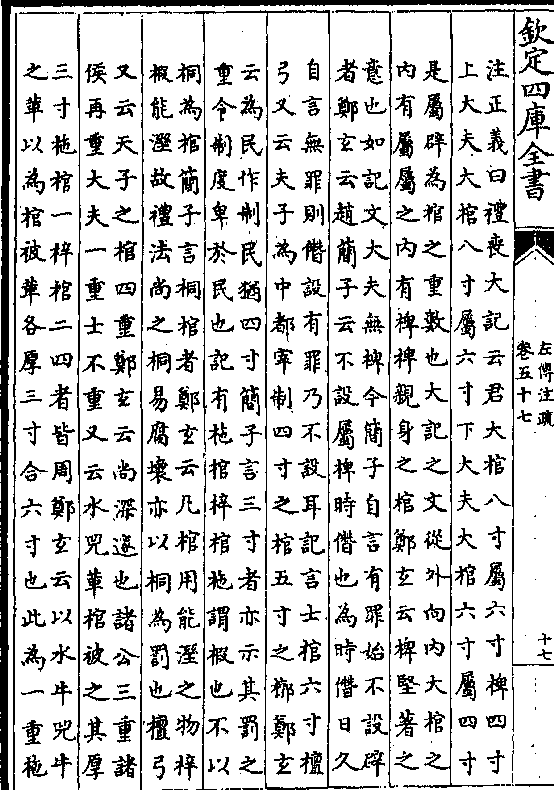 欽定四庫全書
左傳注疏
卷五十七
十七
注正義曰禮喪大記云君大棺八寸屬六寸椑四寸
上大夫大棺八寸屬六寸下大夫大棺六寸屬四寸
是屬辟為棺之重數也大記之文從外向內大棺之
內有屬屬之內有椑椑親身之棺鄭玄云椑堅著之
意也如記文大夫無椑今簡子自言有罪始不設辟
者鄭玄云趙簡子云不設屬椑時僭也為時僭日久
自言無罪則僭設有罪乃不設耳記言士棺六寸檀
弓又云夫子為中都宰制四寸之棺五寸之槨鄭玄
云為民作制民猶四寸簡子言三寸者亦示其罰之
重令制度卑於民也記有杝棺梓棺杝謂椵也不以
桐為棺簡子言桐棺者鄭玄云凡棺用能溼之物梓
椵能溼故禮法尚之桐易腐壞亦以桐為罰也檀弓
又云天子之棺四重鄭玄云尚深邃也諸公三重諸
侯再重大夫一重士不重又云水兕革棺被之其厚
三寸杝棺一梓棺二四者皆周鄭玄云以水牛兕牛
之革以為棺被革各厚三寸合六寸也此為一重杝